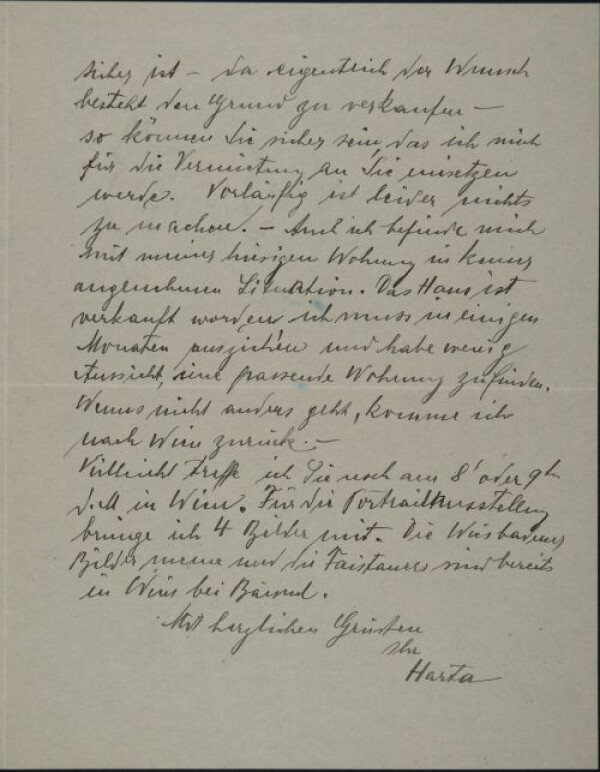 sicher ist – da eigentlich der Wunsch
besteht den Grund zu verkaufen –
so können Sie sicher sein, das ich mich
für die Vermietung an Sie einsetzen
werde. Vorläufig ist leider nichts
zu machen. – Auch ich befinde mich
mit meiner hiesigen Wohnung in keiner
angenehmen Situation. Das Haus ist
verkauft worden ich muss in einigen
Monaten ausziehen und habe wenig
Aussicht, eine passende Wohnung zu finden.
Wenns nicht anders geht, komme ich
nach Wien zurück. –
Vielleicht treffe ich Sie noch am 8' oder 9ten
d. M in Wien. Für die Portraitausstellung
bringe ich 4 Bilder mit. Die Wiesbadener
Bilder meine und die Faistauers sind bereits
in Wien bei
Mit herzlichen Grüssen
Ihr
Harta